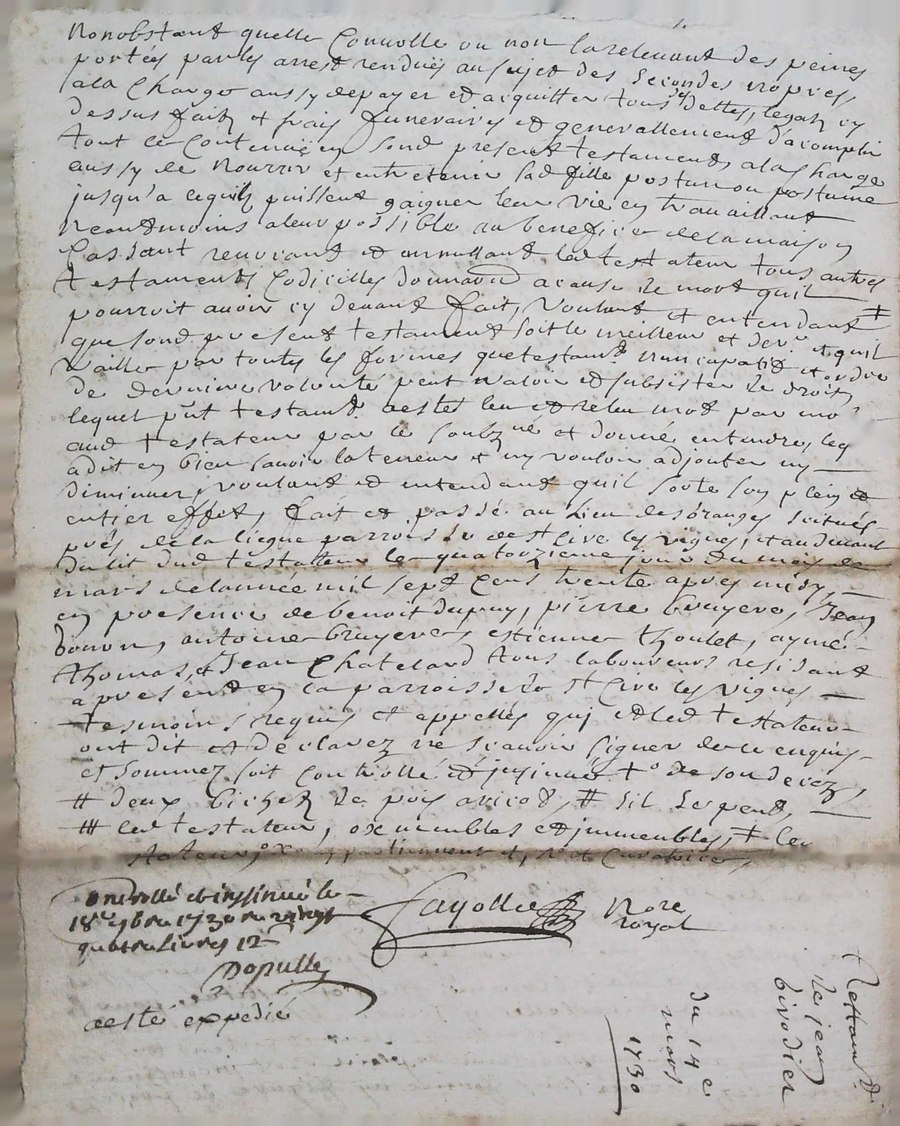 nonobstant quelle Convolle ou non la relevant des peines
portées par les arrest rendües au sujet des secondes nopces,
a la Charge aussy de payer et acquitter tous ses dettes, legatz cy
dessus faitz et frais funeraires et generallement d'acomplir
tout le Contenu en sond present testament, a la Charge
aussy de nourrir et entretenir lad fille postum ou postume
jusqu'a ce quilz puissent gaigner leur vie en travaillant
neantmoins a leur possible au benefice de la maison
Cassant revocant et annullant led testateur tous autres
testaments Codicilles donnaōn a cause de mort quil
pourroit avoir cy devant fait, voulant et entendant ‡
que sond present testament soit le meilleur et der.r et quil
vaille par toutes les formes que testamt nuncupatif et ordre
de derniere volonté peut valoir et subsister de droit,
lequel pñt testamt a esté leu et releu mot par mot
aud testateur par le soubzné et donné entendre, leq
a dit en bien savoir la teneur et ny vouloir adjouter ny
diminuer, voulant et entendant quil sorte son plein et
entier effet, fait et passé au Lieu des oranges scitué
prés de la Liegue parroisse de st Cire les vignes, et au devant
dudit dud testateur le quatorzieme jour du mois de
mars de l'année mil sept Cens trente apres midy,
en presence de benoit dupuy, pierre bruyere, Jean
bonon, antoine bruyere, estienne thoulet, aymé
thomas, et Jean Chatelard tous laboureurs residant
a present en la parroisse de st Cire les vignes
tesmoins requis et appellés qui et led testateur
ont dit et declarez ne scavoir signer de ce enquis
et sommez soit Controllé et jnsinué to de son decez,
# deux bichetz de pois aricot, # sil se peut,
## led testateur, ox meubles et jmmeubles, ‡ led
testateur
Controllé et inssinué le
18e 9bre 1730 ru vingt
quatre Livres 12
Dopully
a esté expedié
Fayolle Nore
royal
Testamt
de jean
birodier
du 14 e
mars
1730